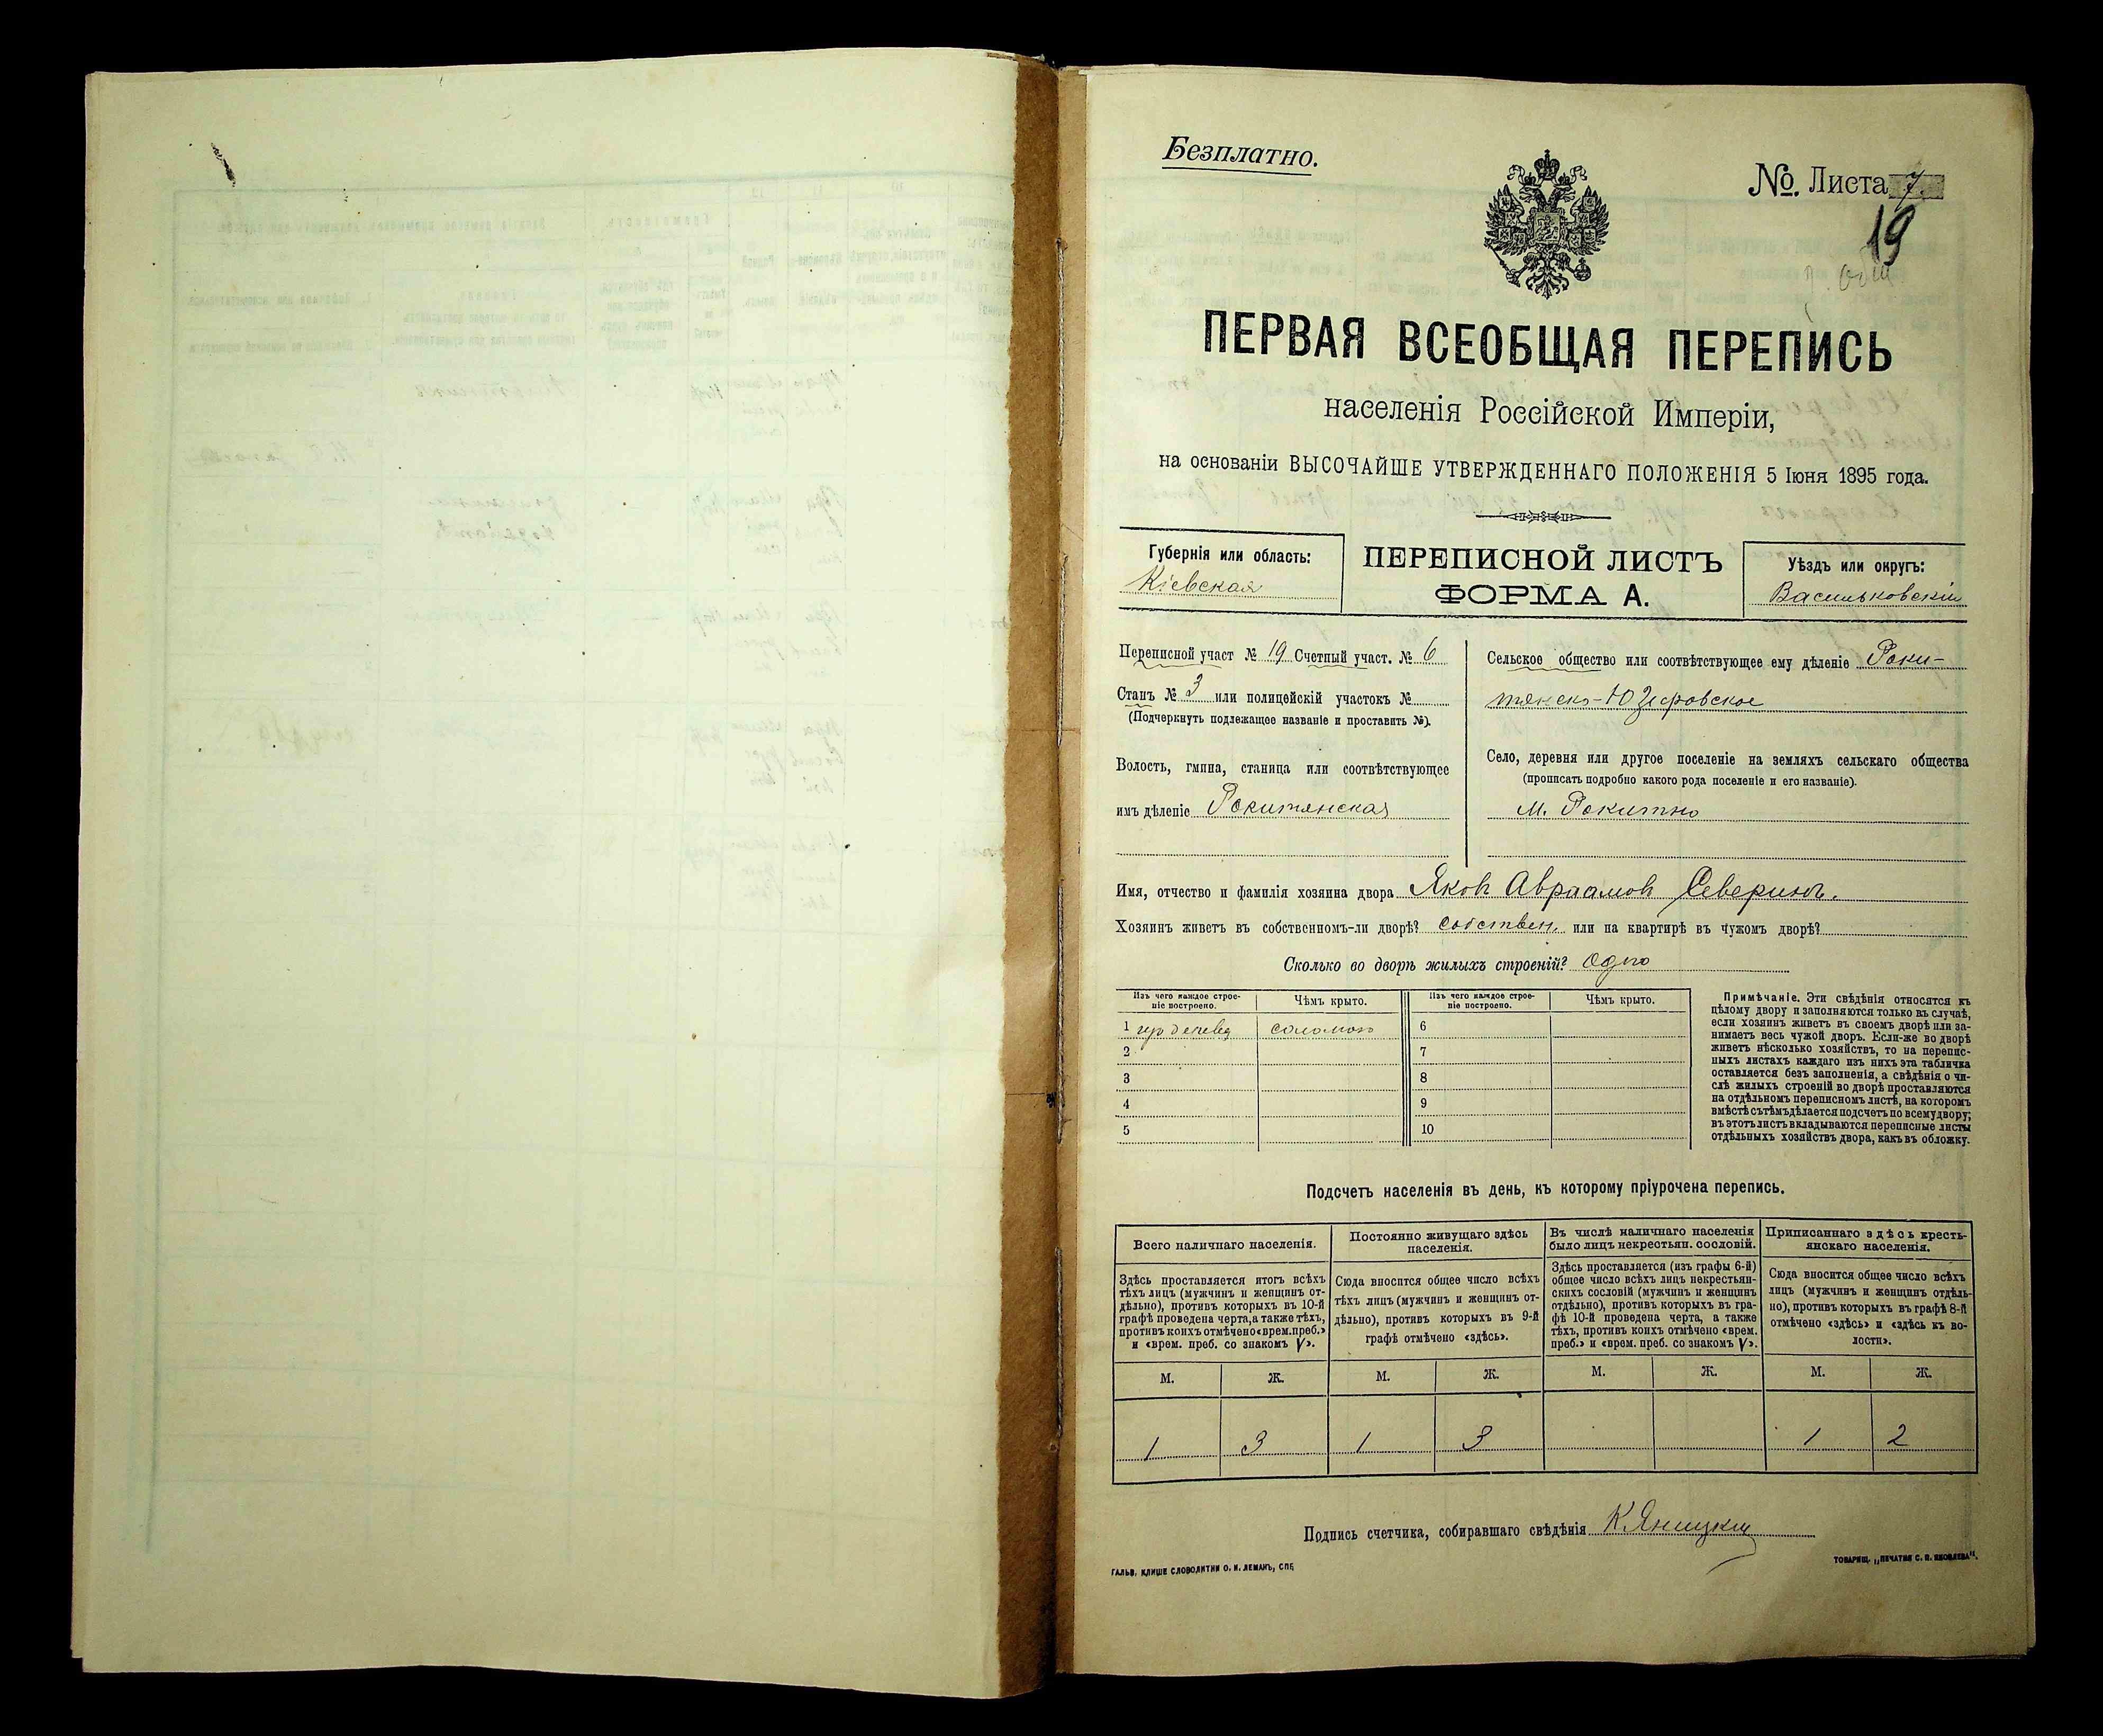 Безплатно.
№. Листа 7.
19
ПЕРВАЯ ВСЕОБЩАЯ ПЕРЕПИСЬ
населенія Россійской Имперіи,
на основаніи ВЫСОЧАЙШЕ УТВЕРЖДЕННАГО ПОЛОЖЕНІЯ 5 Іюня 1895 года.
Губернія или область:
Кіевская
ПЕРЕПИСНОЙ ЛИСТЪ
ФОРМА А.
Уѣздъ или округъ:
Васильковскій
Переписной участ № 19 Счетный участ. № 6
Станъ № 3 или полицейскій участокъ №
(Подчеркнуть подлежащее названіе и проставить №).
Волость, гмина, станица или соотвѣтствующее
имъ дѣленіе Рокитянская
Сельское общество или соотвѣтствующее ему дѣленіе Роки-
тянско-Юзефовское
Село, деревня или другое поселеніе на земляхъ сельскаго общества
(прописать подробно какого рода поселеніе и его названіе).
м. Рокитно
Имя, отчество и фамилія хозяина двора Яковъ Авраамовъ Северинъ.
Хозяинъ живетъ въ собственномъ-ли дворѣ? собствен. или на квартирѣ въ чужомъ дворѣ?
Сколько во дворѣ жилыхъ строеній? одно
Изъ чего каждое строе-
ніе построено.
Чѣмъ крыто.
Изъ чего каждое строе-
ніе построено.
Чѣмъ крыто.
1 соломою 6
2 7
3 8
4 9
5 10
Примѣчаніе. Эти свѣдѣнія относятся къ
цѣлому двору и заполняются только въ случаѣ,
если хозяинъ живетъ въ своемъ дворѣ или за-
нимаетъ весь чужой дворъ. Если-же во дворѣ
живетъ нѣсколько хозяйствъ, то на перепис-
ныхъ листахъ каждаго изъ нихъ эта табличка
оставляется безъ заполненія, а свѣдѣнія о чи-
слѣ жилыхъ строеній во дворѣ проставляются
на отдѣльномъ переписномъ листѣ, на которомъ
вмѣстѣ съ тѣмъ дѣлается подсчетъ по всему двору;
въ этотъ листъ вкладываются переписные листы
отдѣльныхъ хозяйствъ двора, какъ въ обложку.
Подсчетъ населенія въ день, къ которому пріурочена перепись.
Всего наличнаго населенія.
Здѣсь проставляется итогъ всѣхъ
тѣхъ лицъ (мужчинъ и женщинъ от-
дѣльно), противъ которыхъ въ 10-й
графѣ проведена черта, а также тѣхъ,
противъ коихъ отмѣчено «врем. преб.»
и «врем. преб. со знакомъ V».
Постоянно живущаго здѣсь
населенія.
Сюда вносится общее число всѣхъ
тѣхъ лицъ (мужчинъ и женщинъ от-
дѣльно), противъ которыхъ въ 9-й
графѣ отмѣчено «здѣсь».
Въ числѣ наличнаго населенія
было лицъ некрестьян. сословій.
Здѣсь проставляется (изъ графы 6-й)
общее число всѣхъ лицъ некрестьян-
скихъ сословій (мужчинъ и женщинъ
отдѣльно), противъ которыхъ въ гра-
фѣ 10-й проведена черта, а также
тѣхъ, противъ коихъ отмѣчено «врем.
преб.» и «врем. преб. со знакомъ V».
Приписаннаго здѣсь кресть-
янскаго населенія.
Сюда вносится общее число всѣхъ
лицъ (мужчинъ и женщинъ отдѣль-
но), противъ которыхъ въ графѣ 8-й
отмѣчено «здѣсь» и «здѣсь къ во-
лости».
М. Ж. М. Ж. М. Ж. М. Ж.
1 3 1 3 1 2
Подпись счетчика, собиравшаго свѣдѣнія К. Яницкій
ГАЛЬВ. КЛИШЕ СЛОВОЛИТНИ О. И. ЛЕМАНЪ, СПБ.
ТОВАРИЩ. „ПЕЧАТНЯ С. П. ЯКОВЛЕВА".